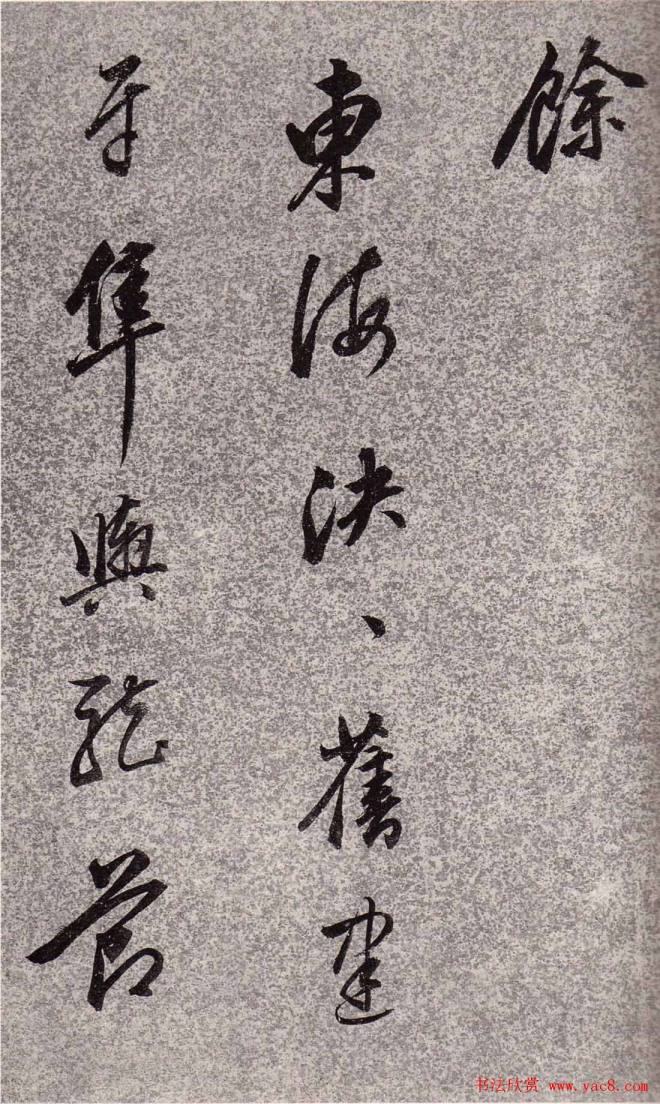 餘
東海泱、舊建
牙隼旟龍節
书法欣赏 www.yac8.com